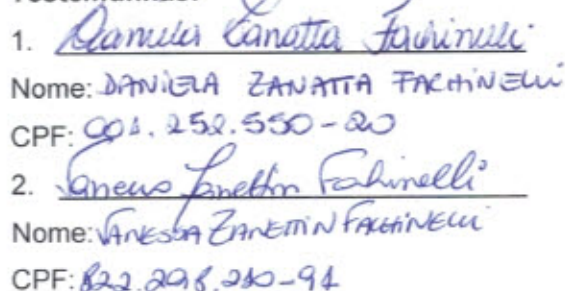 Testemunhas:
1. Daniela Zanatta Fachinelli
Nome: DANIELA ZANATTA FACHINELLI
CPF: 901.252.550-20
2. Vanessa Zanettin Fachinelli
Nome: VANESSA ZANETTIN FACHINELLI
CPF: 822.298.210-91